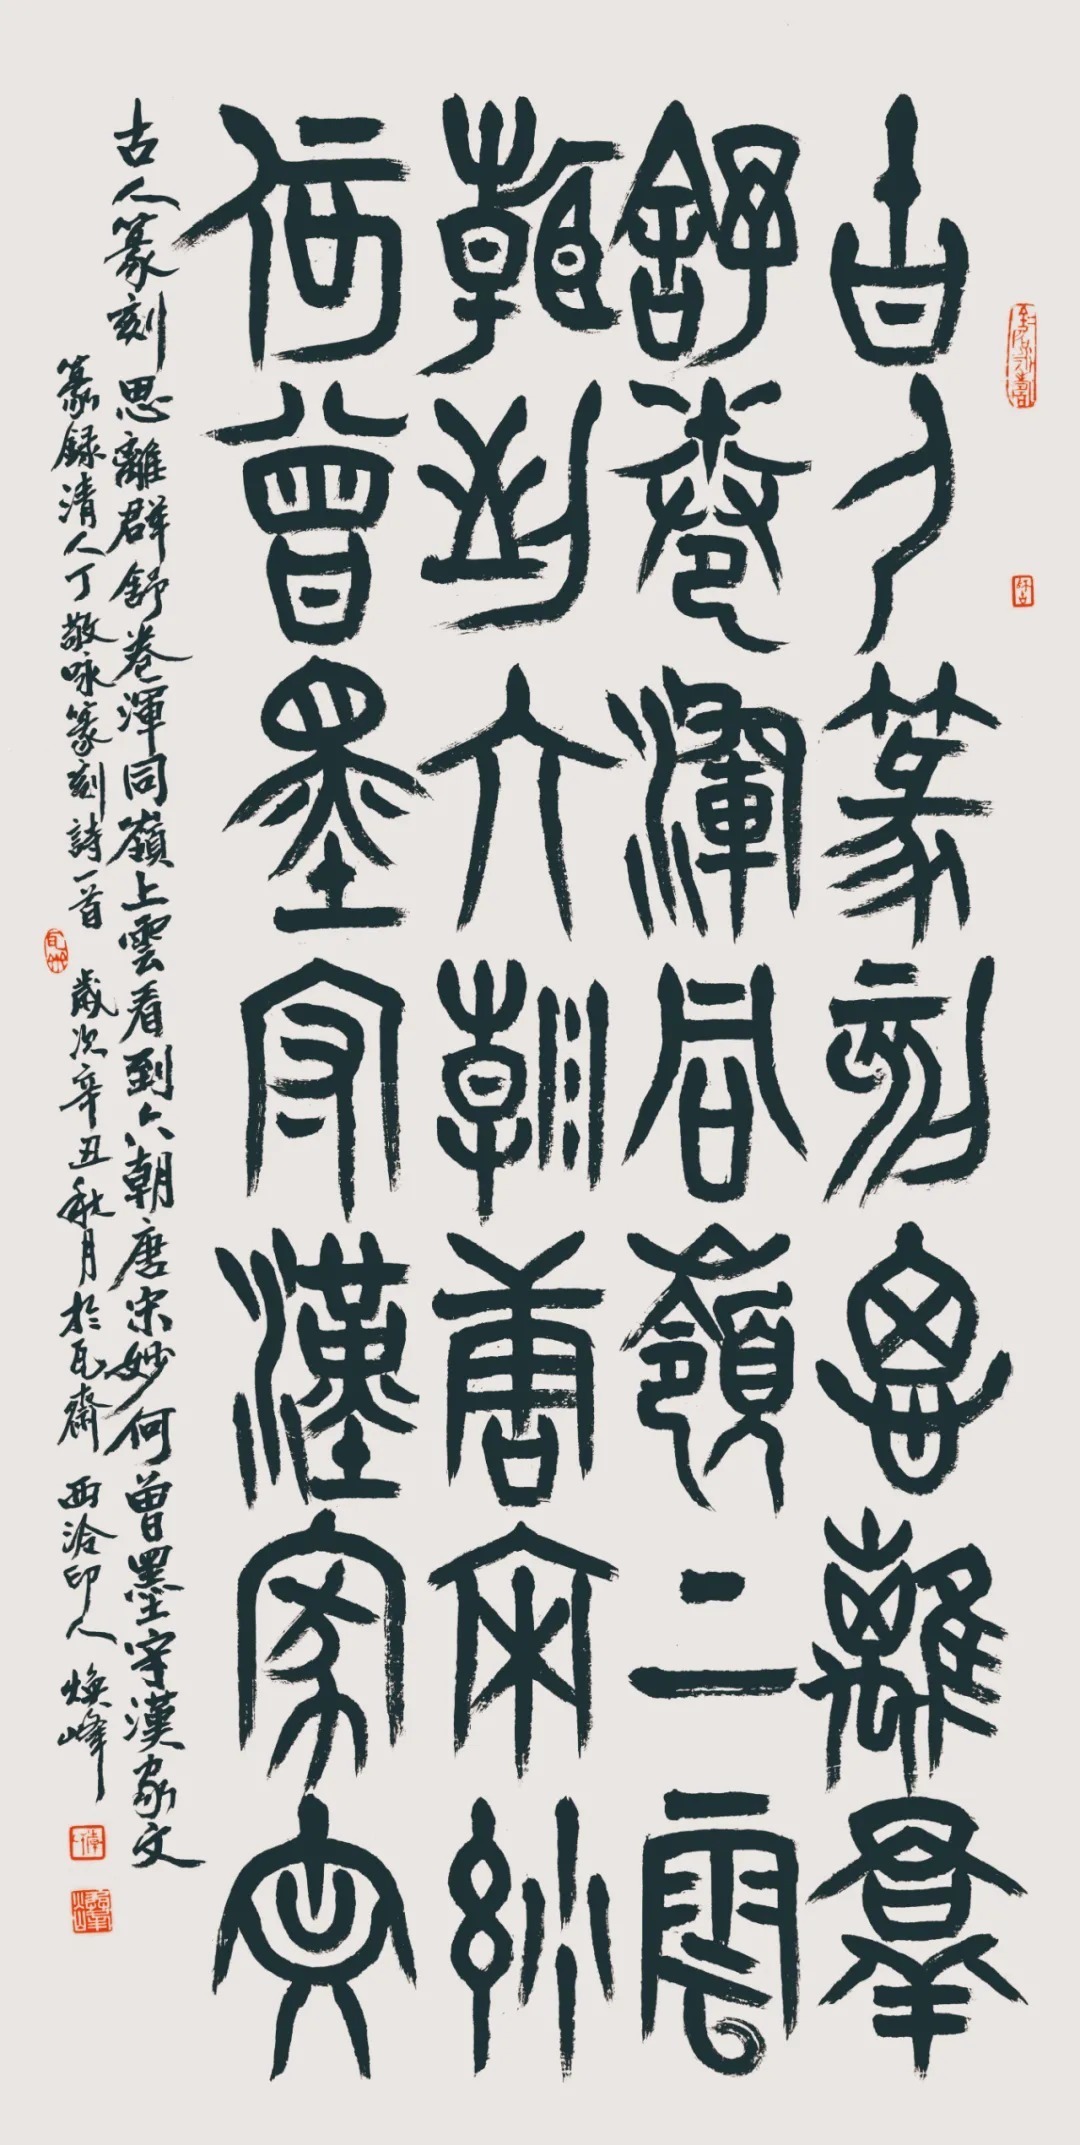 古人篆刻思離羣
舒卷渾同嶺上雲
看到六朝唐宋妙
何曾墨守漢家文
古人篆刻思離群舒卷渾同嶺上雲看到六朝唐宋妙何曾墨守漢家文
篆録清人丁敬咏篆刻詩一首 歲次辛丑秋月於瓦齋 西泠印人 煥峰